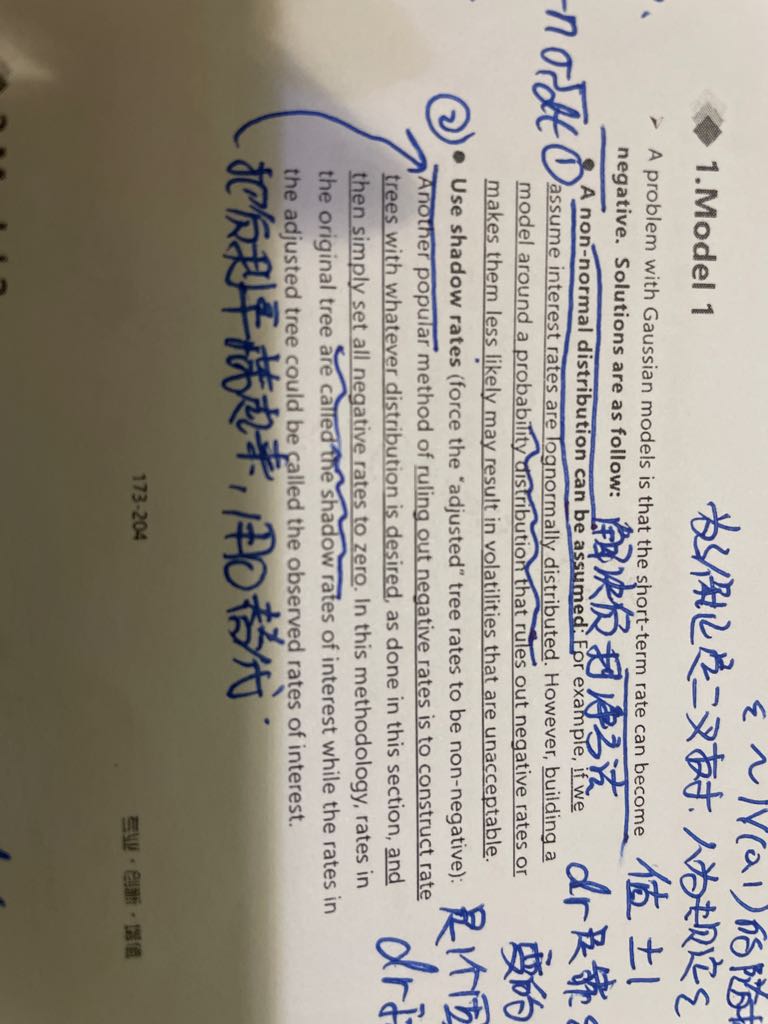 1.Model 1
➢ A problem with Gaussian models is that the short-term rate can become
negative. Solutions are as follow: 解决负利率方法
① • A non-normal distribution can be assumed: For example, if we
assume interest rates are lognormally distributed. However, building a
model around a probability distribution that rules out negative rates or
makes them less likely may result in volatilities that are unacceptable.
② • Use shadow rates (force the "adjusted" tree rates to be non-negative):
Another popular method of ruling out negative rates is to construct rate
trees with whatever distribution is desired, as done in this section, and
then simply set all negative rates to zero. In this methodology, rates in
the original tree are called the shadow rates of interest while the rates in
the adjusted tree could be called the observed rates of interest.
把负利率藏起来，用0替代.
173-204
专业·创新·增值
ε ~ N(0,1) 的随机
人为规定 ε
值 ±1
dr
变的
是个
dr